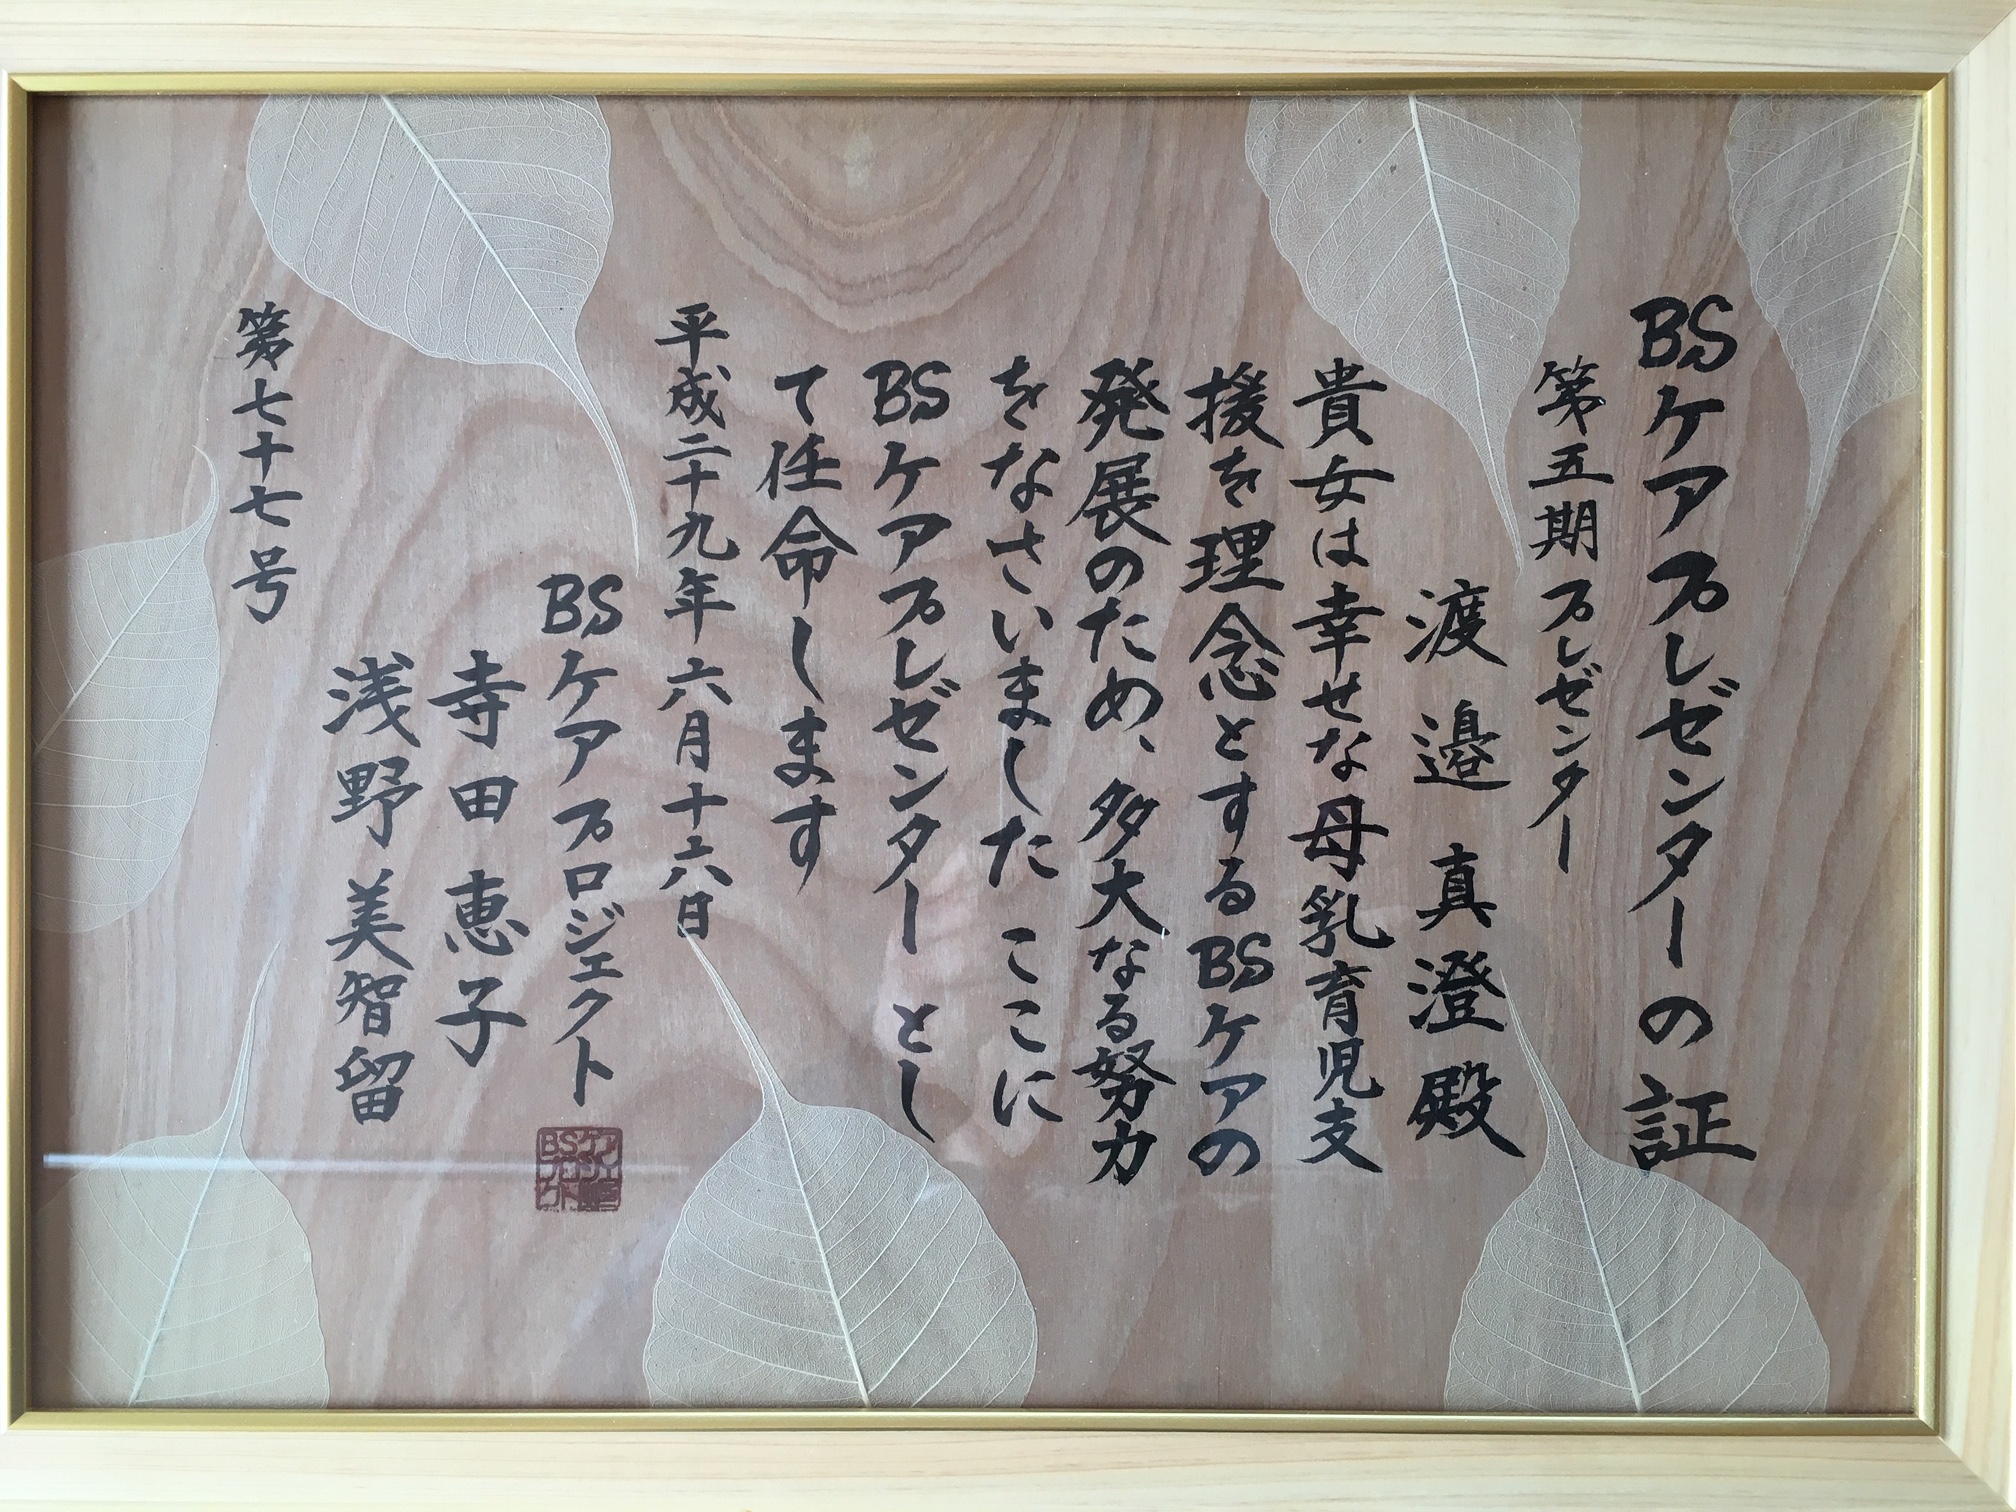 BSケアプレゼンターの証
第五期プレゼンター
渡邉 真澄殿
貴女は幸せな母乳育児支
援を理念とするBSケアの
発展のため、多大なる努力
をなさいました ここに
BSケアプレゼンター とし
て任命します
平成二十九年 六月十六日
BSケア プロジェクト
寺田 恵子
浅野 美智留
第七十七号